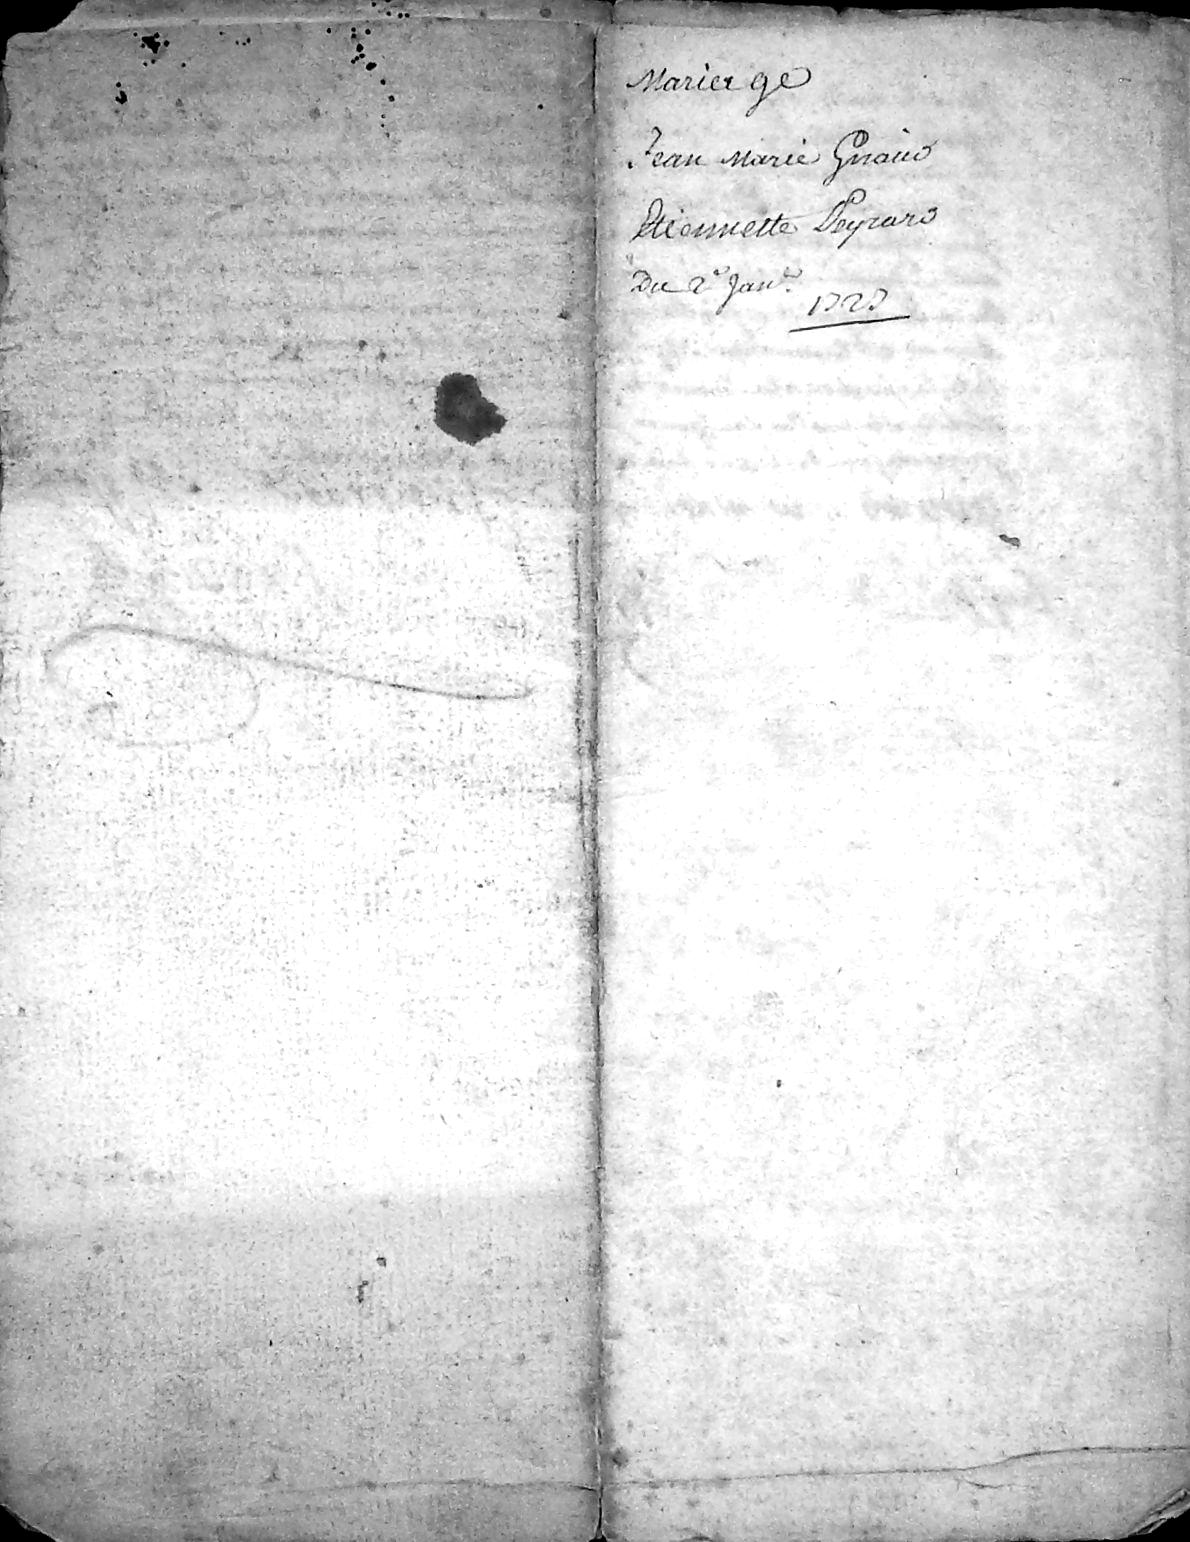 Mariage
Jean Marie Giraud
Etiennette Peyrard
Du 2e Janr.
1727